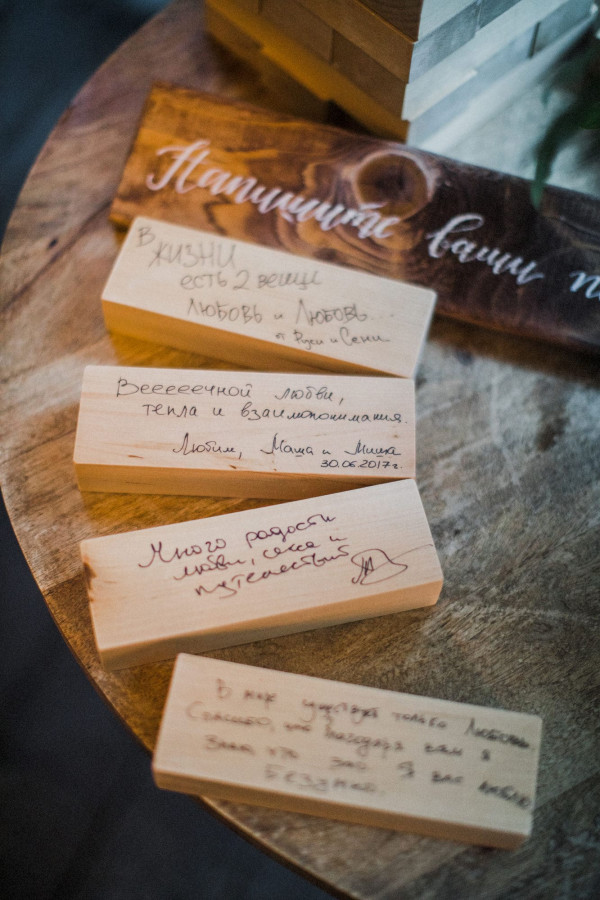 Напишите ваши
В
ЖИЗНИ
есть 2 вещи
ЛЮБОВЬ и ЛЮБОВЬ...
от Руси и Сени
Вееееечной любви,
тепла и взаимопонимания.
Любим, Маша и Мишка
30.06.2017г.
Много радости
любви, секса и
путешествий
В мире только Любовь
Спасибо, что благодаря вам я
знаю, что это. Я вас люблю
Безумно.